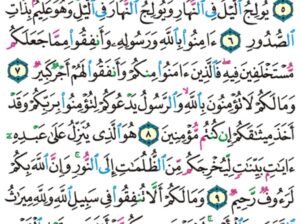 ٥ يُولِجُ اُلَّيْلَ فِي اِلنَّهَارِ وَيُولِجُ اُلنَّهَارَ فِي اِلَّيْلِ وَهُوَ عَلِيمٌ بِذَاتِ
اِلصُّدُورِ ٦ ءَامِنُواْ بِاللَّهِ وَرَسُولِهِ وَأَنفِقُواْ مِمَّا جَعَلَكُم
مُّسْتَخْلَفِينَ فِيهِ فَالَّذِينَ ءَامَنُواْ مِنكُمْ وَأَنفَقُواْ لَهُمْ أَجْرٌ كَبِيرٌ ٧
وَمَا لَكُمْ لَا تُؤْمِنُونَ بِاللَّهِ وَالرَّسُولُ يَدْعُوكُمْ لِتُؤْمِنُواْ بِرَبِّكُمْ وَقَدْ
أخذ ميثٰقكم إِن كُنتُم مُّؤْمِنِينَ ٨ هُوَ اَلَّذِي ينزل عَلَىٰ عَبْدِهِ
ءَايَٰتٍ بَيِّنَٰتٍ لِّيُخْرِجَكُم مِّنَ اَلظُّلُمَٰتِ إِلَى اَلنُّورِ وَإِنَّ اَللَّهَ بِكُمْ
لَرَءُوفٌ رَّحِيمٌ ٩ وَمَا لَكُمْ أَلَّا تُنفِقُواْ فِي سَبِيلِ اِللَّهِ وَلِلَّهِ مِيرَٰثُ